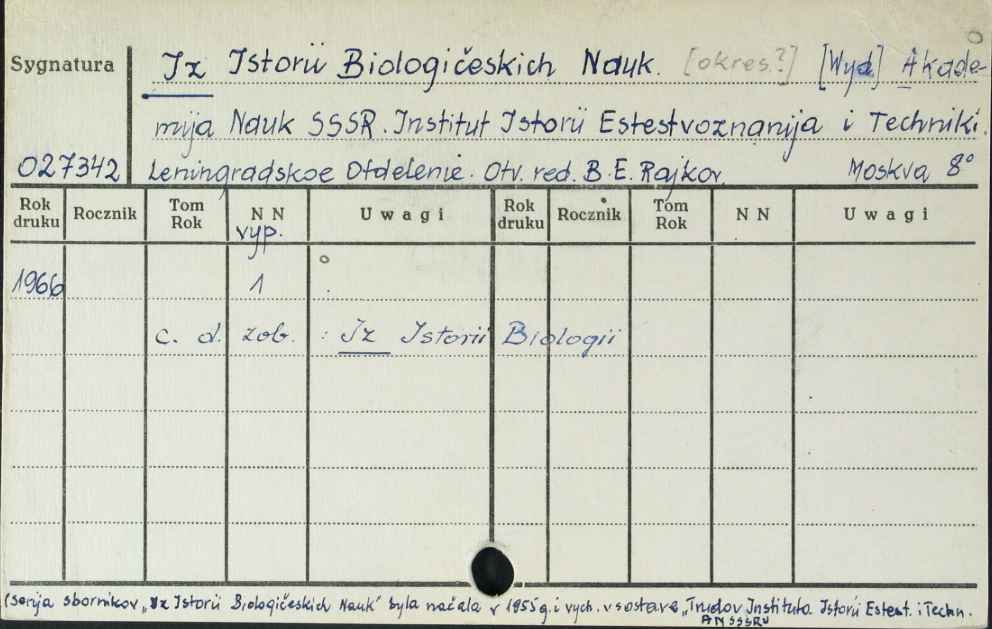 Sygnatura
Iz Istorii Biologičeskich Nauk. [okres?] [Wyd] Akade-
mija Nauk SSSR. Institut Istorii Estestvoznanija i Techniki.
027342 Leningradskoe Otdelenie. Otv. red. B.E. Rajkov. Moskva 8°
Rok druku Rocznik Tom Rok NN vyp. Uwagi Rok druku Rocznik Tom Rok NN Uwagi
1966 1
c. d. zob. : Iz Istorii Biologii
(Serija sbornikov "Iz Istorii Biologičeskich Nauk" byla načata v 1955 g. i vych. v sostave "Trudov Instituta Istorii Estest. i Techn.
AN SSSR"